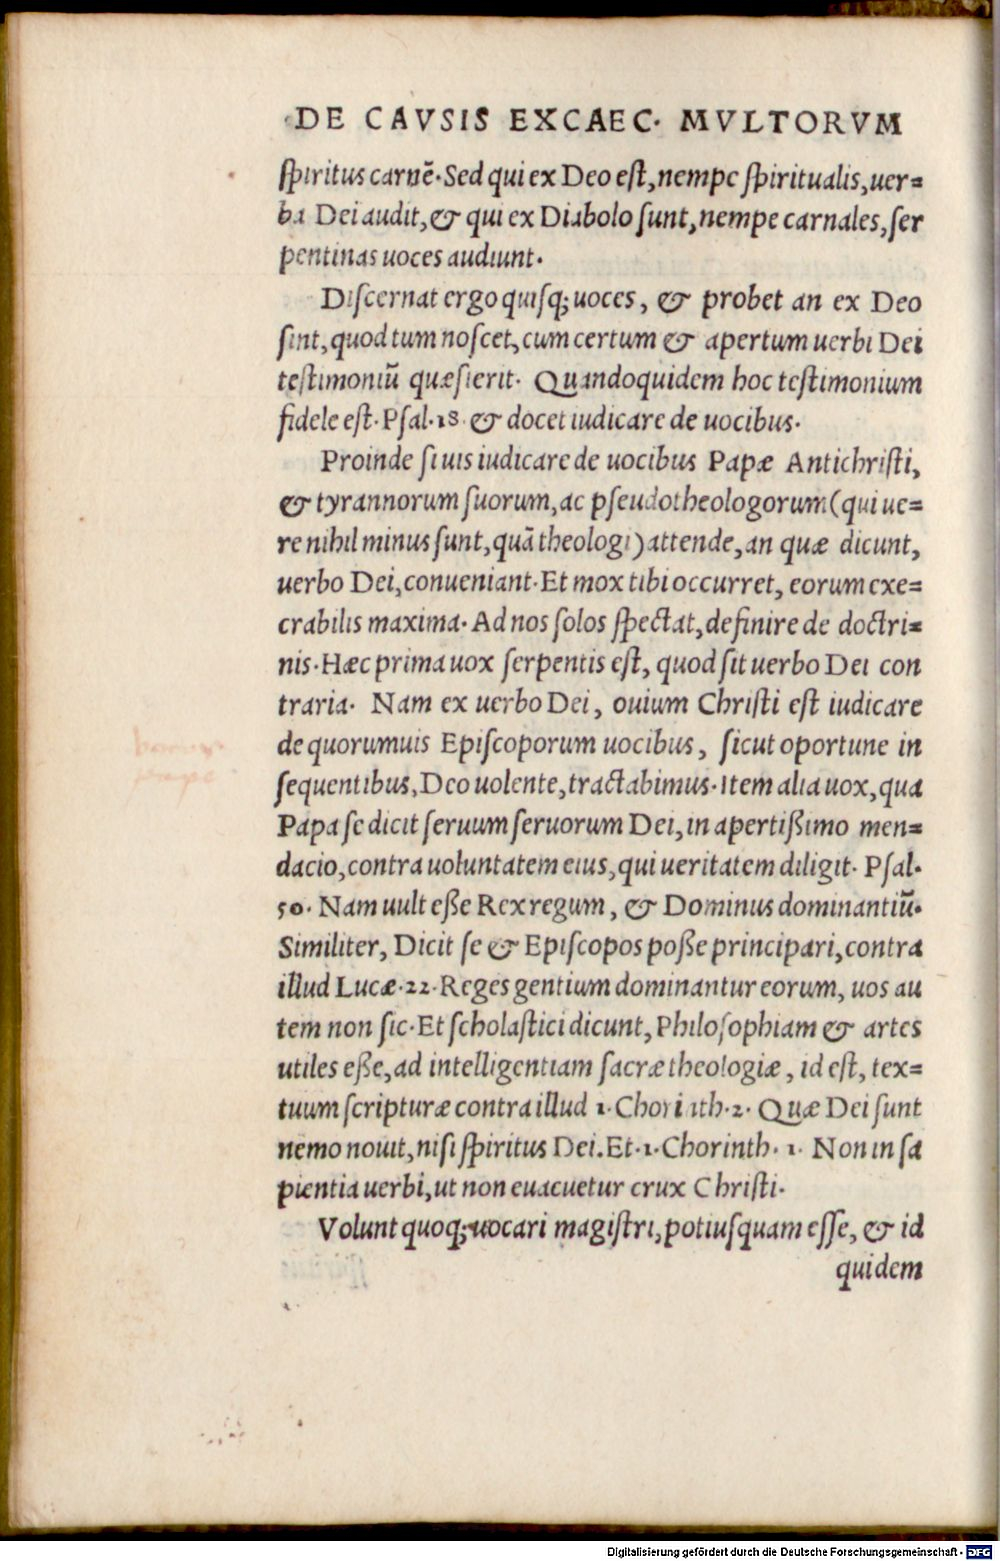 DE CAVSIS EXCAEC· MVLTORVM
spiritus carnē· Sed qui ex Deo est, nempe spiritualis, uer=
ba Dei audit, & qui ex Diabolo sunt, nempe carnales, ser
pentinas uoces audiunt·
Discernat ergo quisq; uoces, & probet an ex Deo
sint, quod tum noscet, cum certum & apertum uerbi Dei
testimoniū quæsierit· Quandoquidem hoc testimonium
fidele est· Psal·18· & docet iudicare de uocibus·
Proinde si uis iudicare de uocibus Papæ Antichristi,
& tyrannorum suorum, ac pseudotheologorum (qui ue=
re nihil minus sunt, quā theologi) attende, an quæ dicunt,
uerbo Dei, conueniant· Et mox tibi occurret, eorum exe=
crabilis maxima· Ad nos solos spectat, definire de doctri=
nis· Hæc prima uox serpentis est, quod sit uerbo Dei con
traria· Nam ex uerbo Dei, ouium Christi est iudicare
de quorumuis Episcoporum uocibus, sicut oportune in
sequentibus, Deo uolente, tractabimus· Item alia uox, qua
Papa se dicit seruum seruorum Dei, in apertißimo men=
dacio, contra uoluntatem eius, qui ueritatem diligit· Psal·
50· Nam uult eße Rex regum, & Dominus dominantiū·
Similiter, Dicit se & Episcopos poße principari, contra
illud Lucæ·22· Reges gentium dominantur eorum, uos au
tem non sic· Et scholastici dicunt, Philosophiam & artes
utiles eße, ad intelligentiam sacræ theologiæ, id est, tex=
tuum scripturæ contra illud 1·Chorinth·2· Quæ Dei sunt
nemo nouit, nisi spiritus Dei. Et·1·Chorinth· 1· Non in sa
pientia uerbi, ut non euacuetur crux Christi·
Volunt quoq; uocari magistri, potiusquam esse, & id
quidem
Digitalisierung gefördert durch die Deutsche Forschungsgemeinschaft - DFG